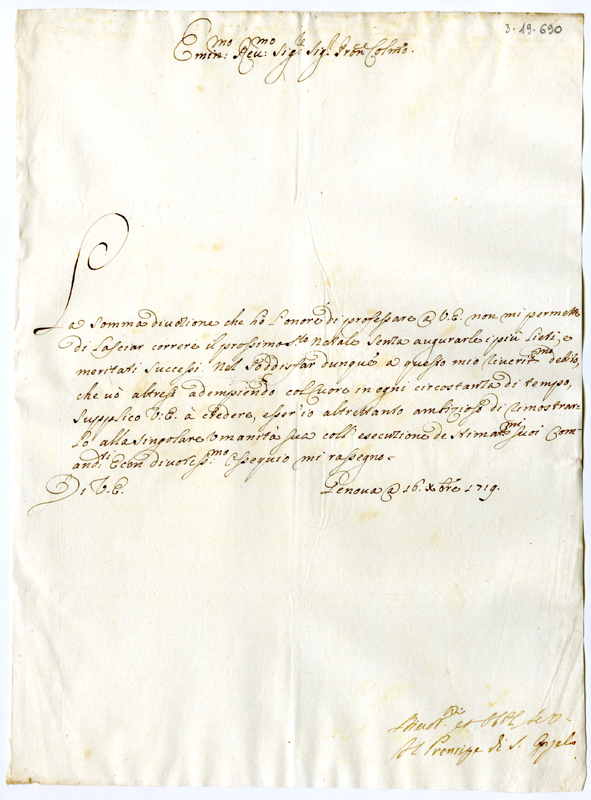 3-19-690
Emin:mo Reu:mo Sig:re Sig:r Pron Colmo.
La Somma diuozione che hò l'onore di professare @ V.E. non mi permette
di Lasciar correre il prossimo Sto Natale senza augurarle i più Lieti, e
meritati Successi. Nel Soddisfar dunque a questo mio riueritmo debito,
che uò altresi adempiendo col Cuore in ogni circostanza di tempo,
Supplico V.E. à credere, esser'io altrettanto ambizioso di rimostrar-
lo alla Singolare Vmanità Sua coll'esecuzione de Stimatmi Suoi Com-
andti. E con diuotess:mo Ossequio mi rassegno=
Di V.E. Genoua @ 16. Xbre 1719.
et
Il Prencipe di S. Angelo